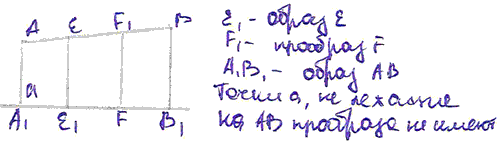 A E F₁ B
a
A₁ E₁ F B₁
E₁ - образ E
F₁ - прообраз F
A₁B₁ - образ AB
Точки a, не лежащие
на AB прообраза не имеют